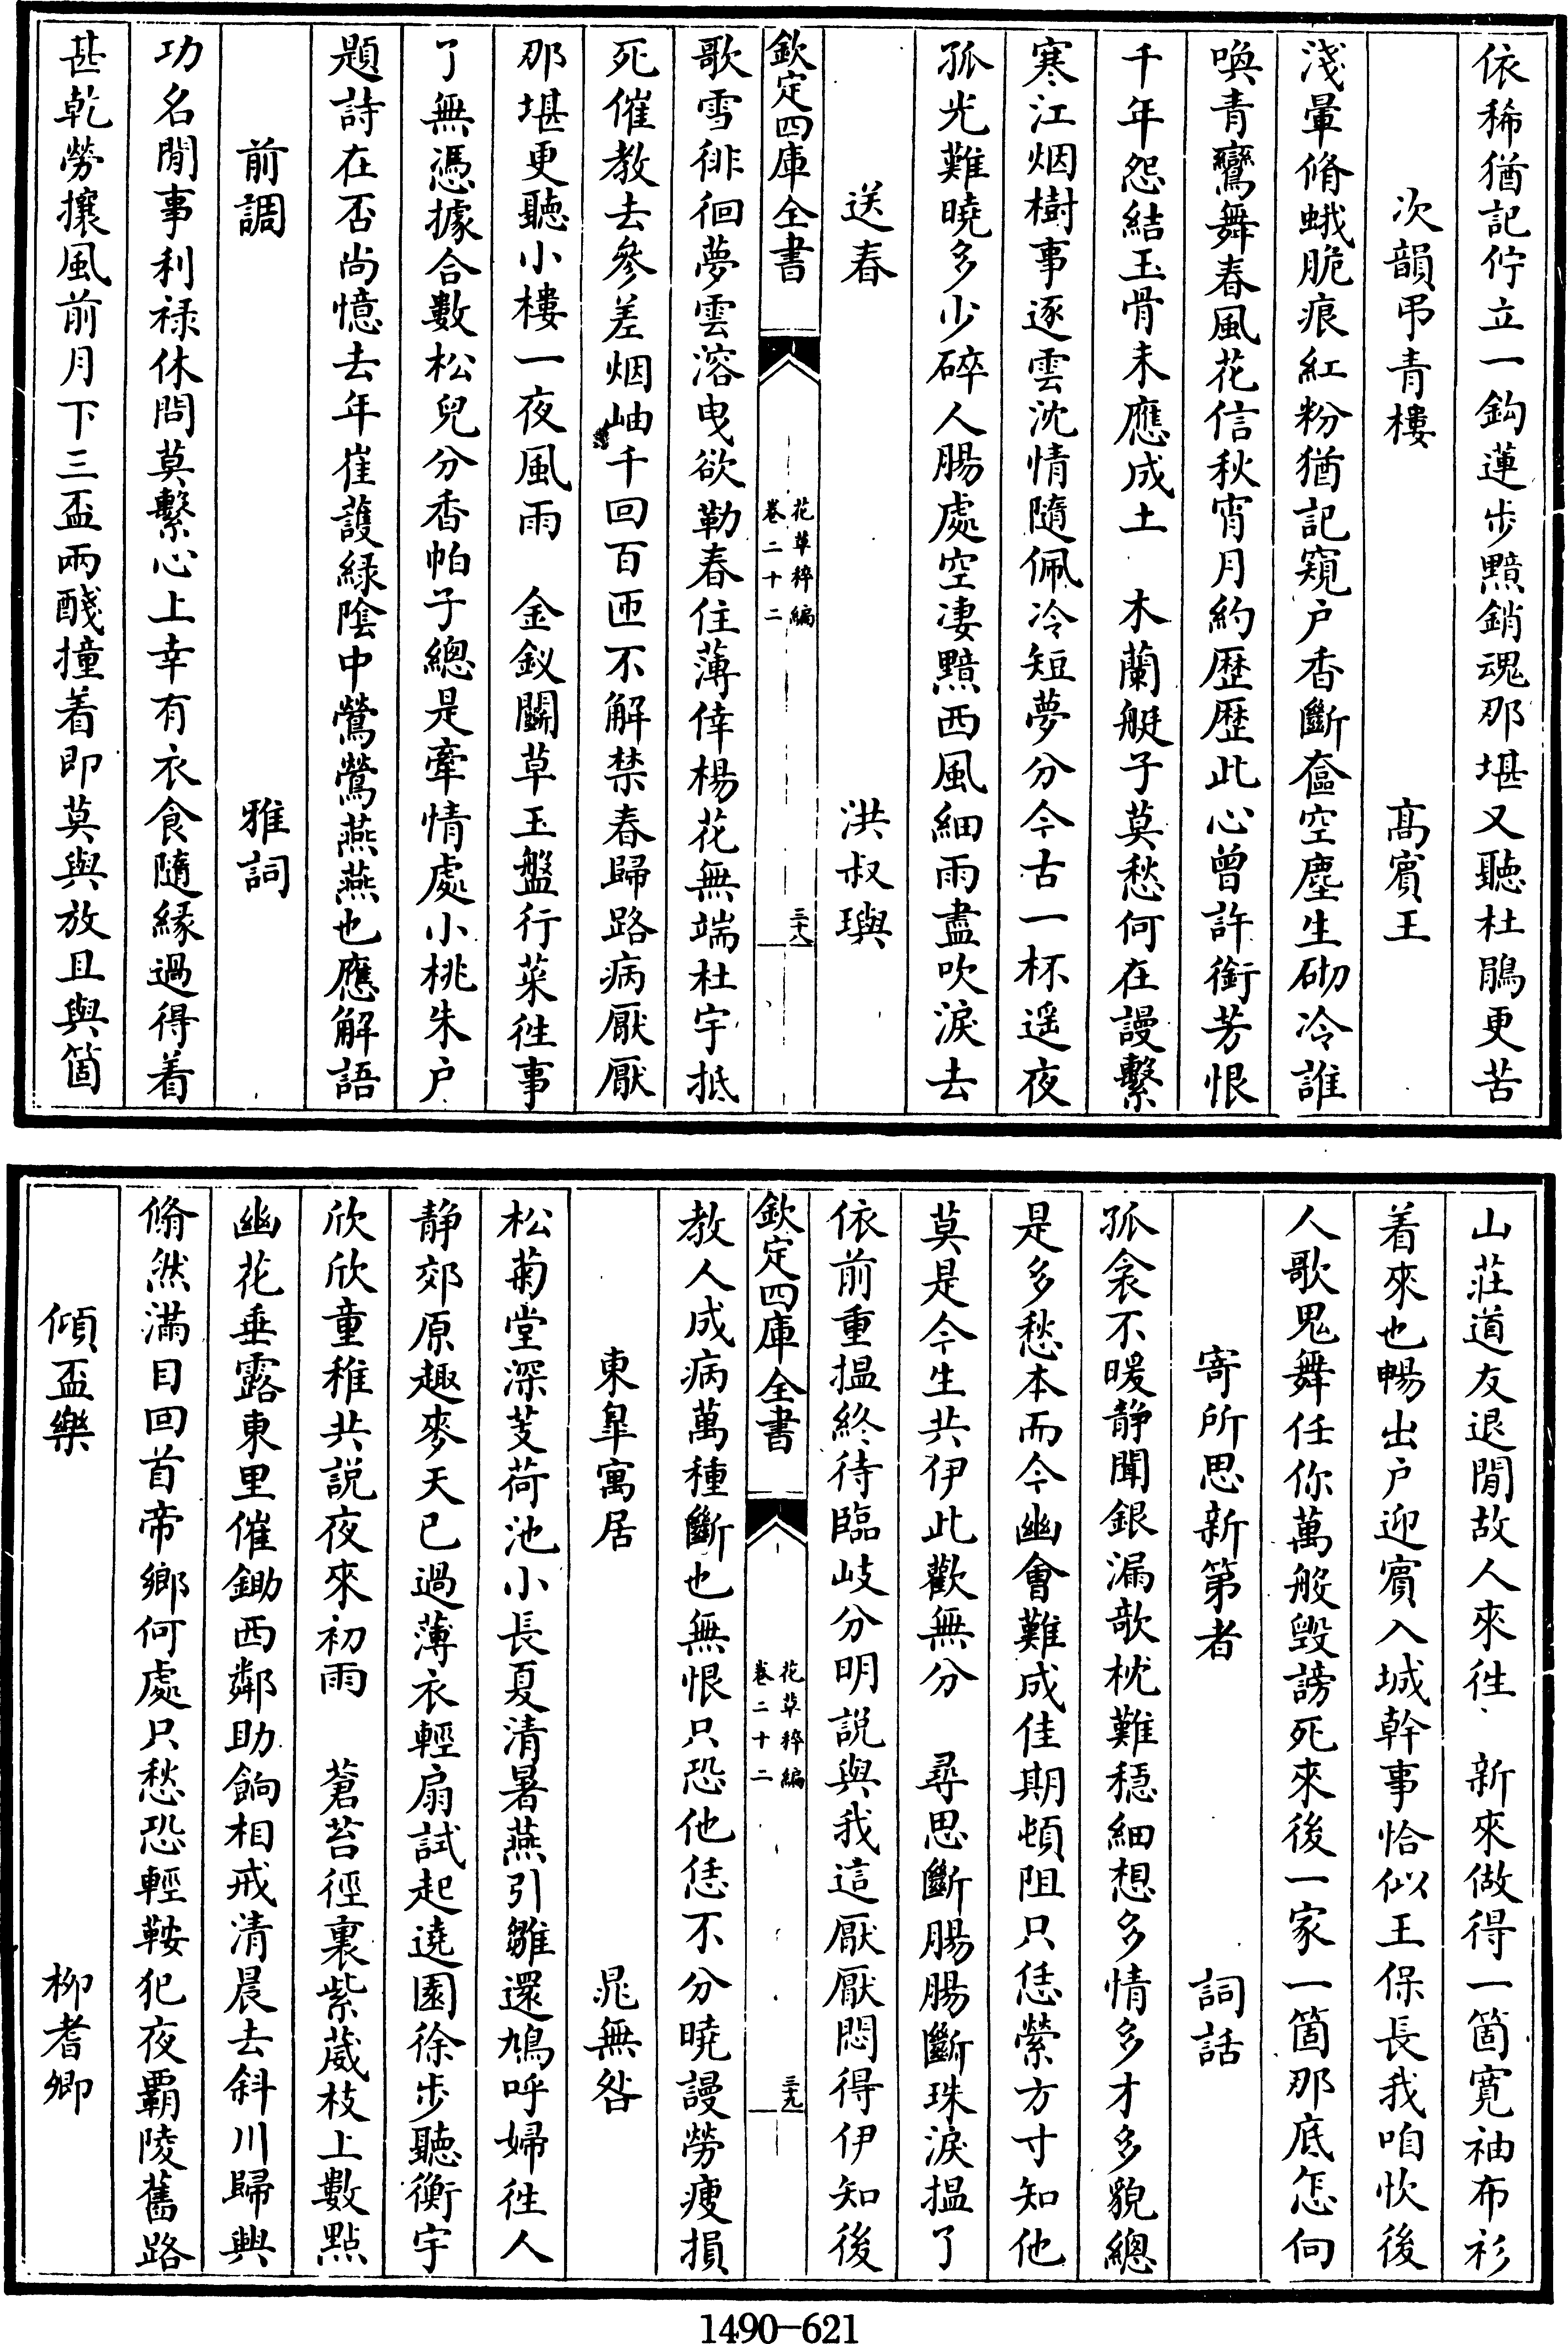 依稀猶記佇立一鈎蓮步黯銷魂那堪又聽杜鵑更苦
次韻弔青樓　高賓王
淺暈脩蛾脆痕紅粉猶記窺户香斷奩空塵生砌冷誰
喚青鸞舞春風花信秋宵月約歷歷此心曾許銜芳恨
千年怨結玉骨未應成土　木蘭艇子莫愁何在謾繫
寒江烟樹事逐雲沈情隨佩冷短夢分今古一杯遥夜
孤光難曉多少碎人腸處空凄黯西風細雨盡吹淚去
送春　洪叔璵
欽定四庫全書
花草稡編
卷二十二
三十八
歌雪徘徊夢雲溶曳欲勒春住薄倖楊花無端杜宇抵
死催教去參差烟岫千回百匝不解禁春歸路病厭厭
那堪更聽小樓一夜風雨　金釵鬭草玉盤行菜徃事
了無憑據合數松兒分香帕子總是牽情處小桃朱户
題詩在否尚憶去年崔護緑陰中鶯鶯燕燕也應解語
前調　雅詞
功名閒事利禄休問莫繫心上幸有衣食隨緣過得着
甚乾勞攘風前月下三盃兩醆撞着即莫與放且與箇
山莊道友退閒故人來徃　新來做得一箇寛袖布衫
着來也暢出户迎賓入城幹事恰似王保長我咱忺後
人歌鬼舞任你萬般毁謗死來後一家一箇那底怎向
寄所思新第者　詞話
孤衾不暖静聞銀漏敧枕難穏細想多情多才多貌總
是多愁本而今幽會難成佳期頓阻只恁縈方寸知他
莫是今生共伊此歡無分　尋思斷腸腸斷珠淚揾了
依前重揾終待臨岐分明説與我這厭厭悶得伊知後
欽定四庫全書
花草稡編
卷二十二
三十九
教人成病萬種斷也無恨只恐他恁不分曉謾勞瘦損
東臯寓居　晁無咎
松菊堂深芰荷池小長夏清暑燕引雛還鳩呼婦徃人
静郊原趣麥天已過薄衣輕扇試起遶園徐步聽衡宇
欣欣童稚共説夜來初雨　蒼苔徑裏紫葳枝上數點
幽花垂露東里催鋤西鄰助餉相戒清晨去斜川歸興
翛然滿目回首帝鄉何處只愁恐輕鞍犯夜覇陵舊路
傾盃樂　柳耆卿
1490-621